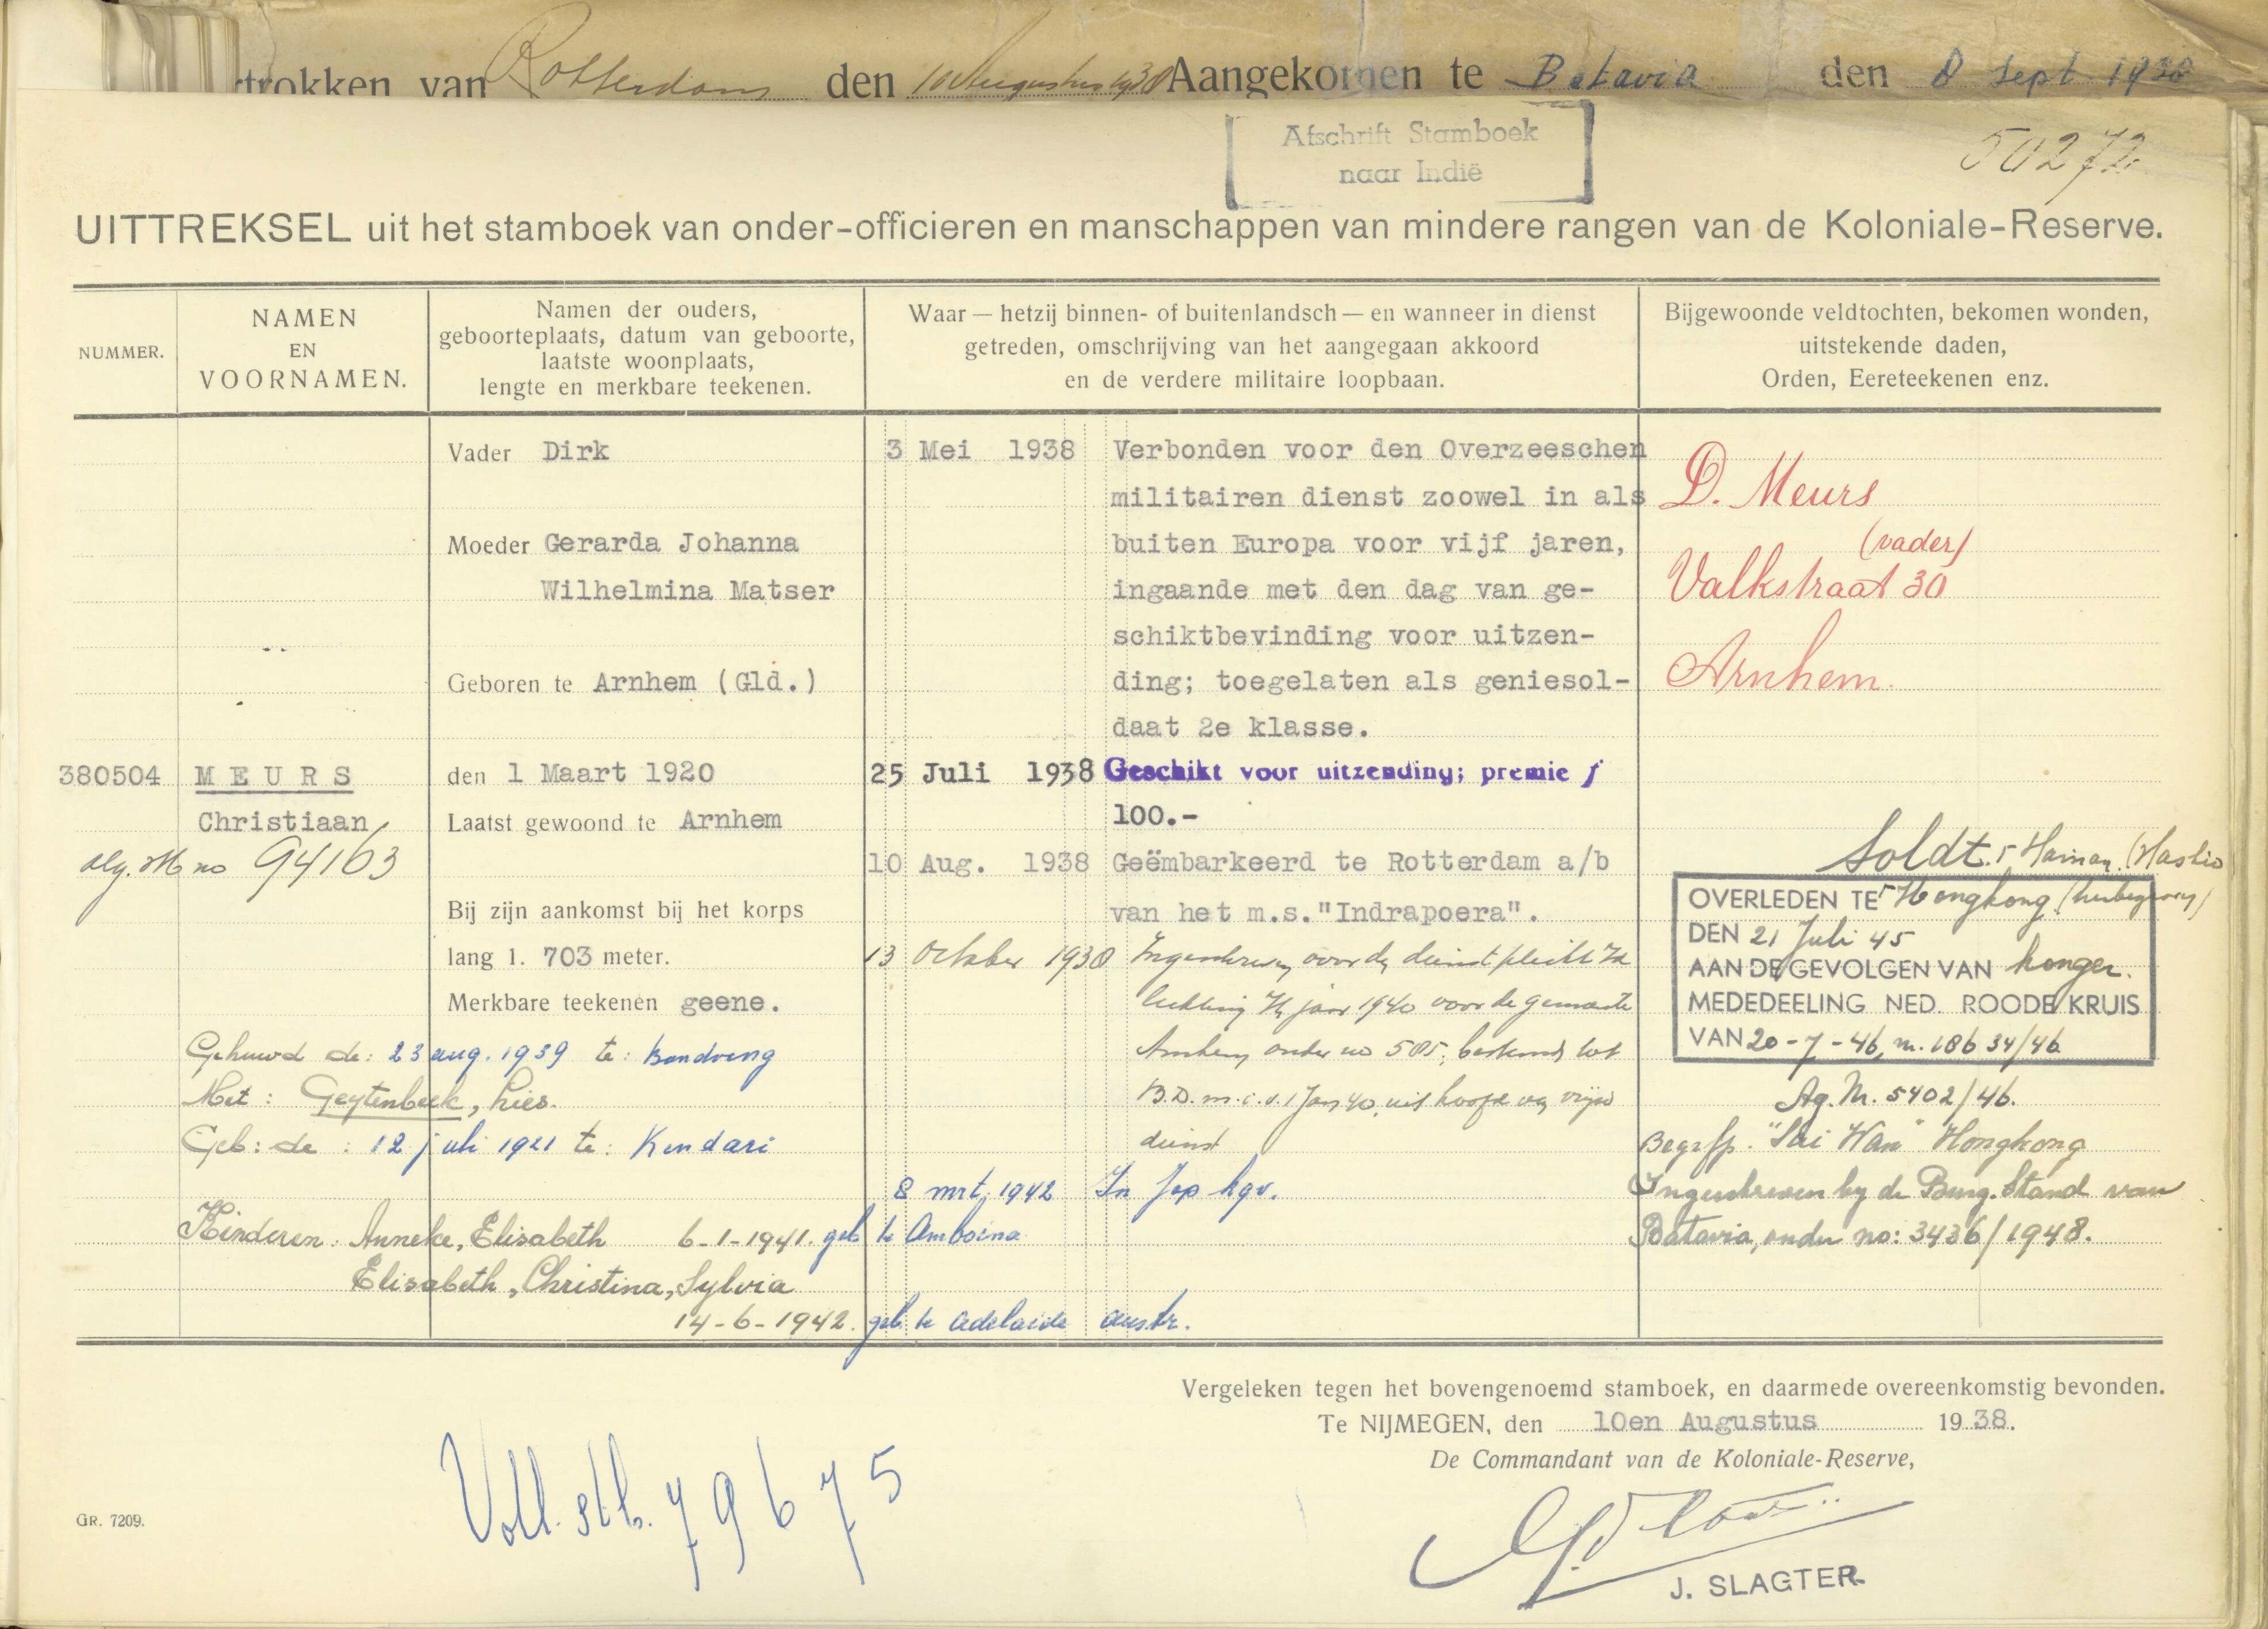 trokken van Rotterdam den 10 Augustus 1938 Aangekomen te Batavia den 8 Sept 1938
Afschrift Stamboek
naar Indië
50272
UITTREKSEL uit het stamboek van onder-officieren en manschappen van mindere rangen van de Koloniale-Reserve.
NUMMER.
NAMEN
EN
VOORNAMEN.
Namen der ouders,
geboorteplaats, datum van geboorte,
laatste woonplaats,
lengte en merkbare teekenen.
Waar — hetzij binnen- of buitenlandsch — en wanneer in dienst
getreden, omschrijving van het aangegaan akkoord
en de verdere militaire loopbaan.
Bijgewoonde veldtochten, bekomen wonden,
uitstekende daden,
Orden, Eereteekenen enz.
380504
MEURS
Christiaan
alg. st no 94163
Vader Dirk
Moeder Gerarda Johanna
Wilhelmina Matser
Geboren te Arnhem (Gld.)
den 1 Maart 1920
Laatst gewoond te Arnhem
Bij zijn aankomst bij het korps
lang 1. 703 meter.
Merkbare teekenen geene.
Gehuwd de: 23 aug. 1939 te: Bandoeng
Met: Geytenbeek, Lies.
Geb: de: 12 juli 1921 te: Kendari
Kinderen: Anneke, Elisabeth 6-1-1941. geb te Amboina
Elisabeth, Christina, Sylvia
14-6-1942. geb. te Adelaide Austr.
3 Mei 1938 Verbonden voor den Overzeeschen
militairen dienst zoowel in als
buiten Europa voor vijf jaren,
ingaande met den dag van ge-
schiktbevinding voor uitzen-
ding; toegelaten als geniesol-
daat 2e klasse.
25 Juli 1938 Geschikt voor uitzending; premie f
100.-
10 Aug. 1938 Geëmbarkeerd te Rotterdam a/b
van het m.s."Indrapoera".
13 October 1938 Ingeschreven voor de dienstplicht
lichting jaar 1940 voor de gemeente
Arnhem onder no 585, bestemd tot
B.D. m.i.v. 1 Jan 40 uit hoofde van vrijw
dienst
8 mrt. 1942 In Jap kgv.
D. Meurs
(vader)
Valkstraat 30
Arnhem.
Soldt. Hainan (Hashio
OVERLEDEN TE Hongkong (herbegraven)
DEN 21 Juli 45
AAN DE GEVOLGEN VAN honger.
MEDEDEELING NED. ROODE KRUIS
VAN 20-7-46, nr. 18634/46
Ag. Nr. 5402/46.
Begrpl. "Sai Wan" Hongkong
Ingeschreven by de Burg. Stand van
Batavia, onder no: 3436/1948.
Vergeleken tegen het bovengenoemd stamboek, en daarmede overeenkomstig bevonden.
Te NIJMEGEN, den 10en Augustus 1938.
De Commandant van de Koloniale-Reserve,
J. SLAGTER
Voll. stb. 79675
GR. 7209.